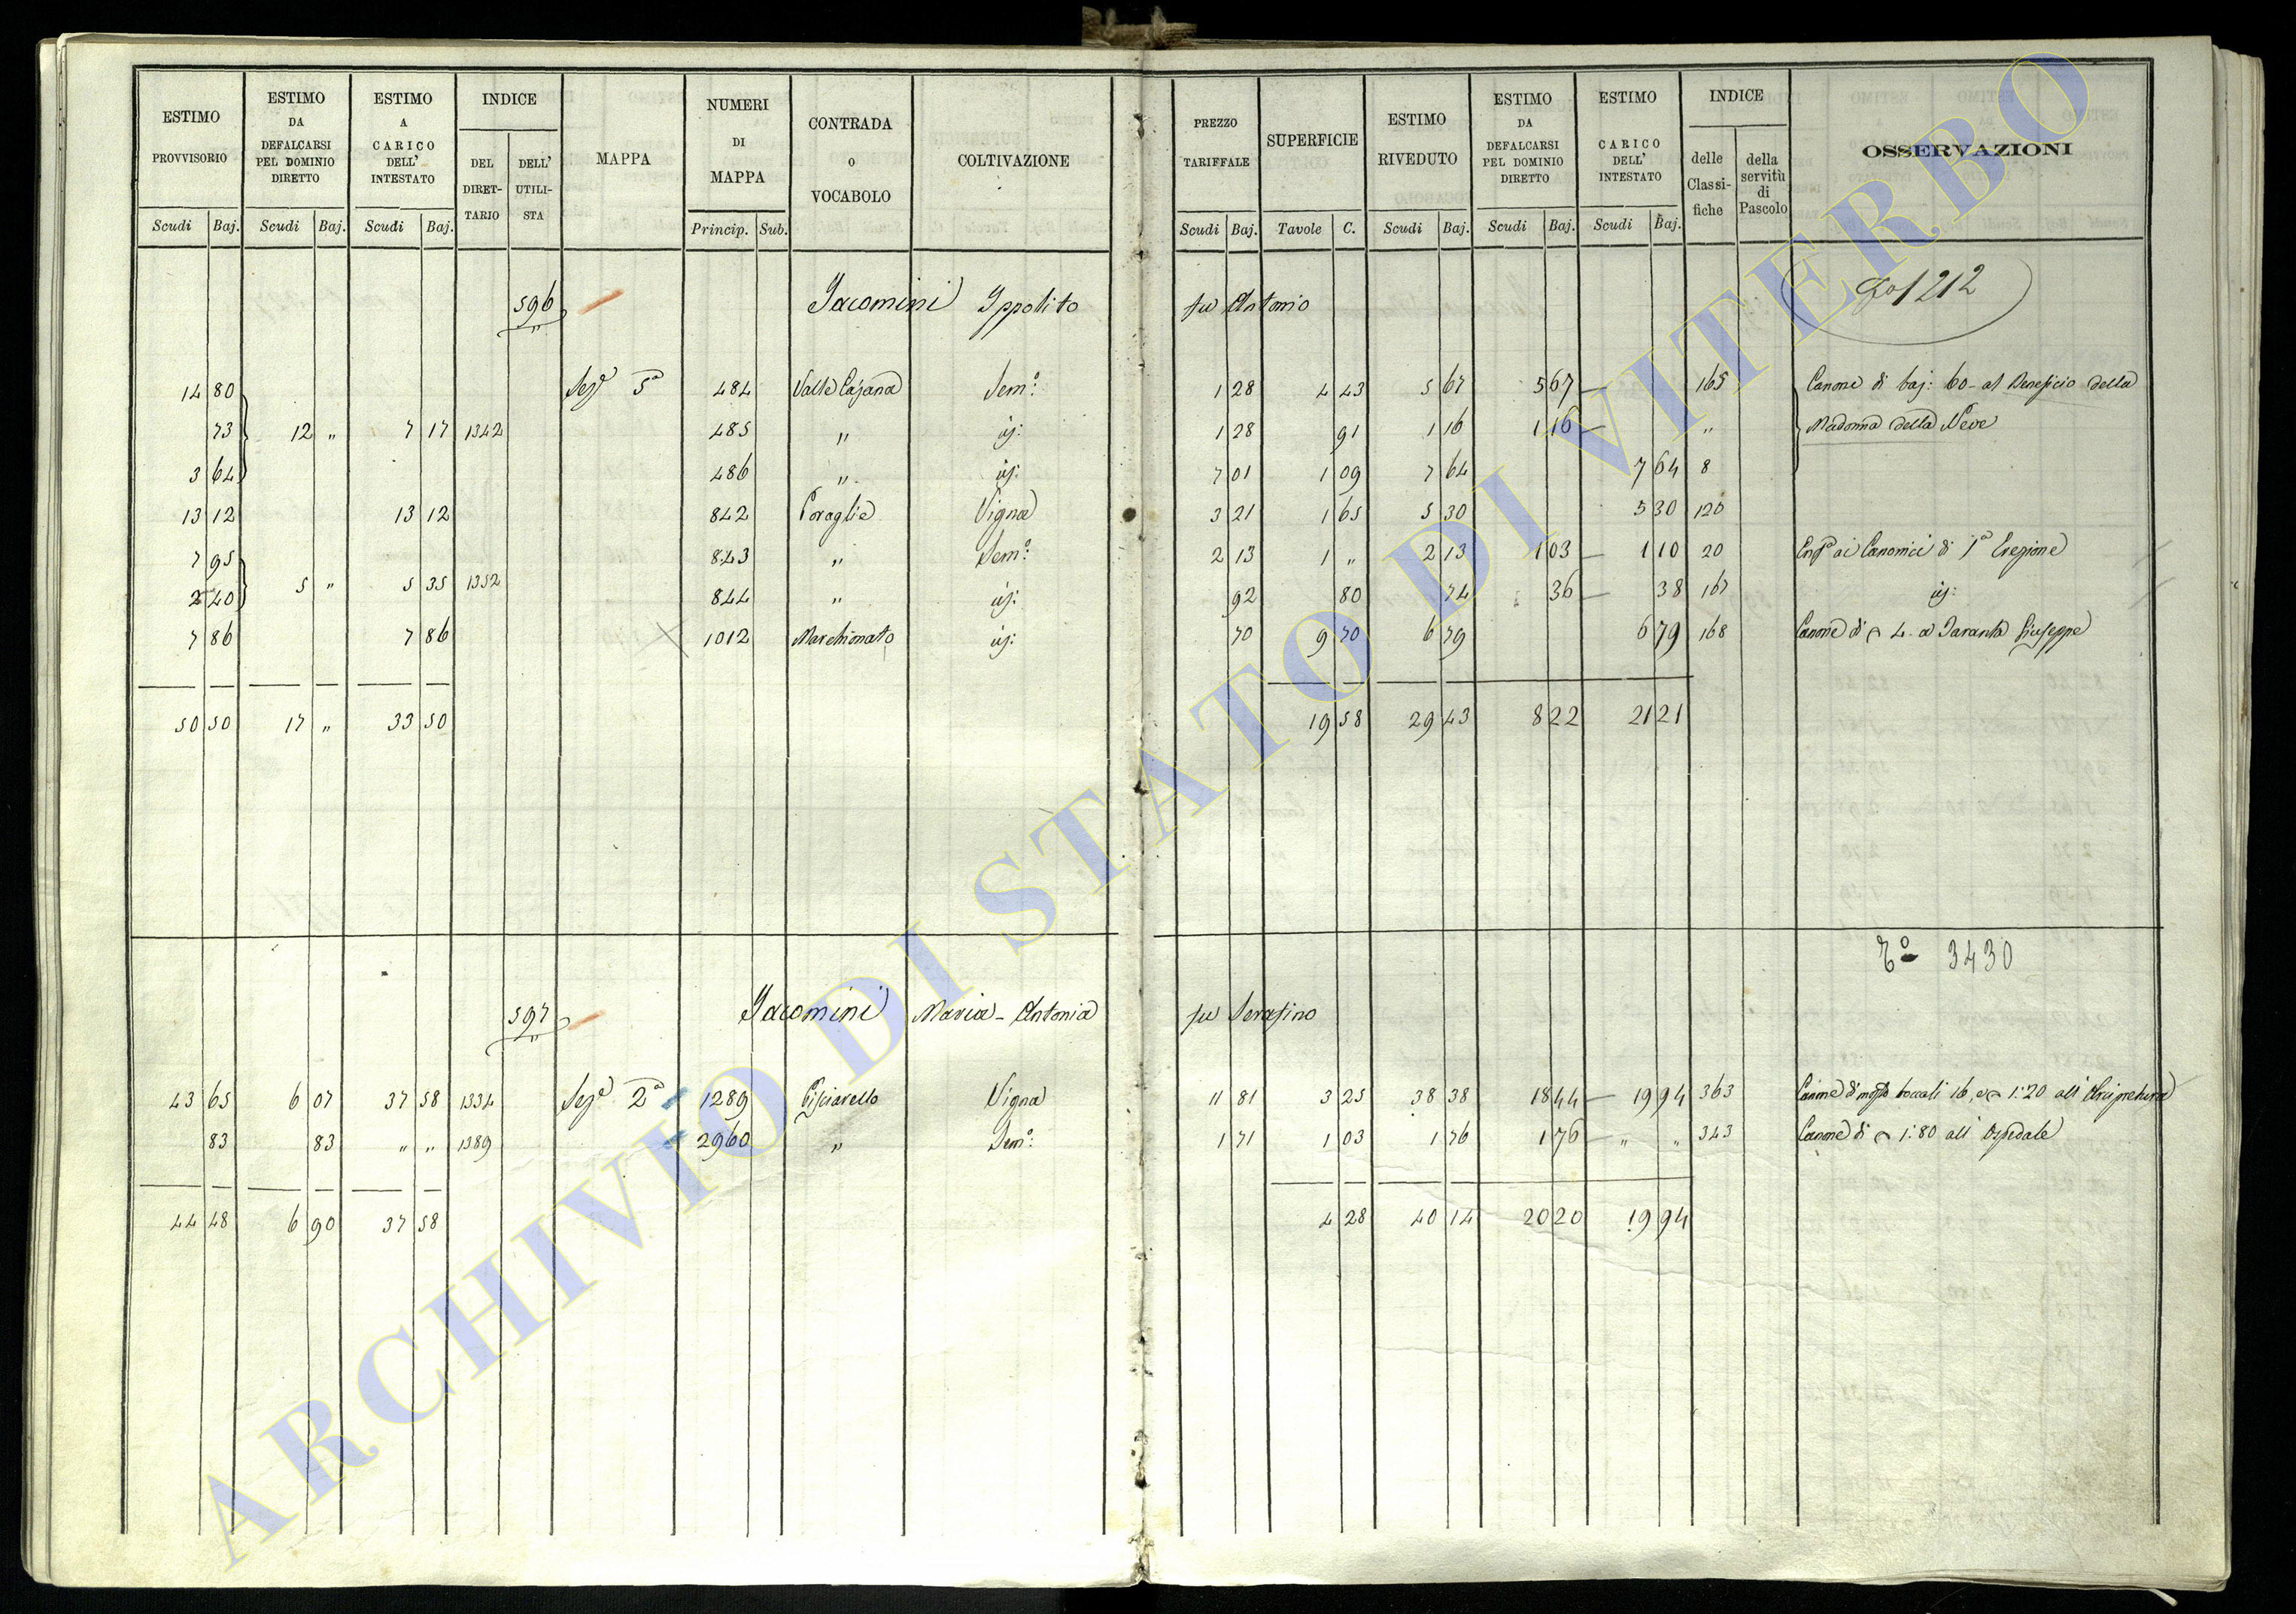 ESTIMO PROVVISORIO | ESTIMO DA DEFALCARSI PEL DOMINIO DIRETTO | ESTIMO A CARICO DELL' INTESTATO | INDICE DEL DIRETTARIO | DELL' UTILISTA | MAPPA | NUMERI DI MAPPA | CONTRADA O VOCABOLO | COLTIVAZIONE | PREZZO TARIFFALE | SUPERFICIE | ESTIMO RIVEDUTO | ESTIMO DA DEFALCARSI PEL DOMINIO DIRETTO | ESTIMO CARICO DELL' INTESTATO | INDICE delle Classifiche | della servitù di Pascolo | OSSERVAZIONI
Scudi Baj. Scudi Baj. Scudi Baj. Princip. Sub. Scudi Baj. Tavole C. Scudi Baj. Scudi Baj. Scudi Baj.
596 Jacomini Ippolito fu Antonio 1212
14 80 Sez.e 5a 484 Valle Cajana Sem.o: 1 28 4 43 5 67 5 67 — 165 Canone di baj: 60 - al Beneficio della
73 12 " 7 17 1342 485 " id: 1 28 91 1 16 1 16 — " Madonna della Neve
3 64 486 " id: 7 01 1 09 7 64 7 64 8
13 12 13 12 842 Poraglie Vigna 3 21 1 65 5 30 5 30 120
7 95 843 " Sem.o: 2 13 1 " 2 13 1 03 — 1 10 20 ai Canonici di 1a Erezione
2 40 5 " 5 35 1352 844 " id: 92 80 74 36 — 38 167 id:
7 86 7 86 1012 Marchionato id: 70 9 70 6 79 6 79 168 Canone di 4 - a Taranta Giuseppe
50 50 17 " 33 50 19 58 29 43 8 22 21 21
3430
597 Jacomini Maria - Antonia fu Serafino
43 65 6 07 37 58 1334 Sez.e 2a 1289 Pisciarello Vigna 11 81 3 25 38 38 18 44 — 19 94 363 Canone di mosto boccali 16, e 1:20 all' Arcipretura
83 83 " " 1389 2960 " Sem.o: 1 71 1 03 1 76 1 76 — " " 343 Canone di 1:80 all' Ospedale
44 48 6 90 37 58 4 28 40 14 20 20 19 94
ARCHIVIO DI STATO DI VITERBO